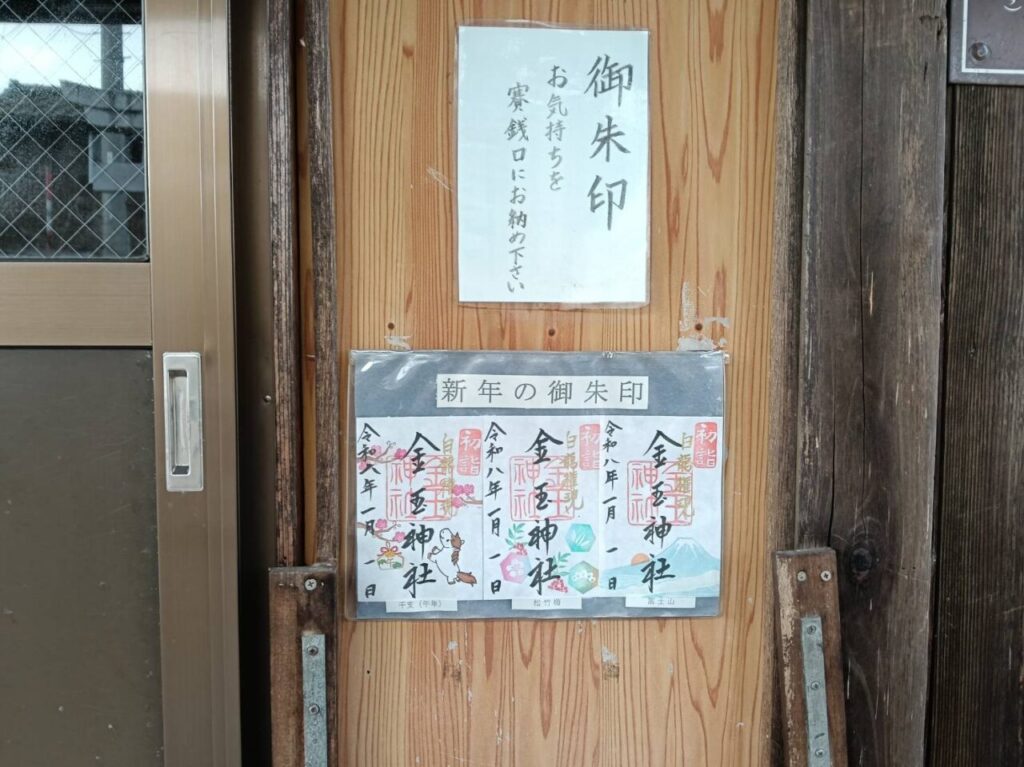 御朱印
お気持ちを
賽銭口にお納め下さい
新年の御朱印
初詣
白龍権現
金玉神社
令和八年一月一日
干支(午年)
初詣
白龍権現
金玉神社
令和八年一月一日
松竹梅
初詣
白龍権現
金玉神社
令和八年一月一日
富士山